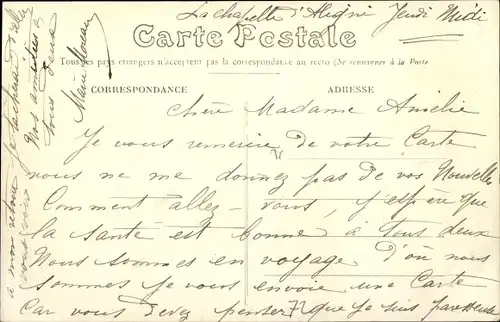 La chapelle d'Aligné Jeudi Midi
Carte Postale
Tous les pays étrangers n'acceptent pas la correspondance au recto (Se renseigner à la Poste)
CORRESPONDANCE
ADRESSE
Chère Madame Amélie
Je vous remercie de votre Carte
vous ne me donnez pas de vos Nouvelles
Comment allez-vous, j'espère que
la santé est bonne à tous deux
Nous sommes en voyage. d'où nous
sommes je vous envoie une Carte
Car vous devez penser que je suis paresseuse
à mon retour
Nos amitiés à
tous deux